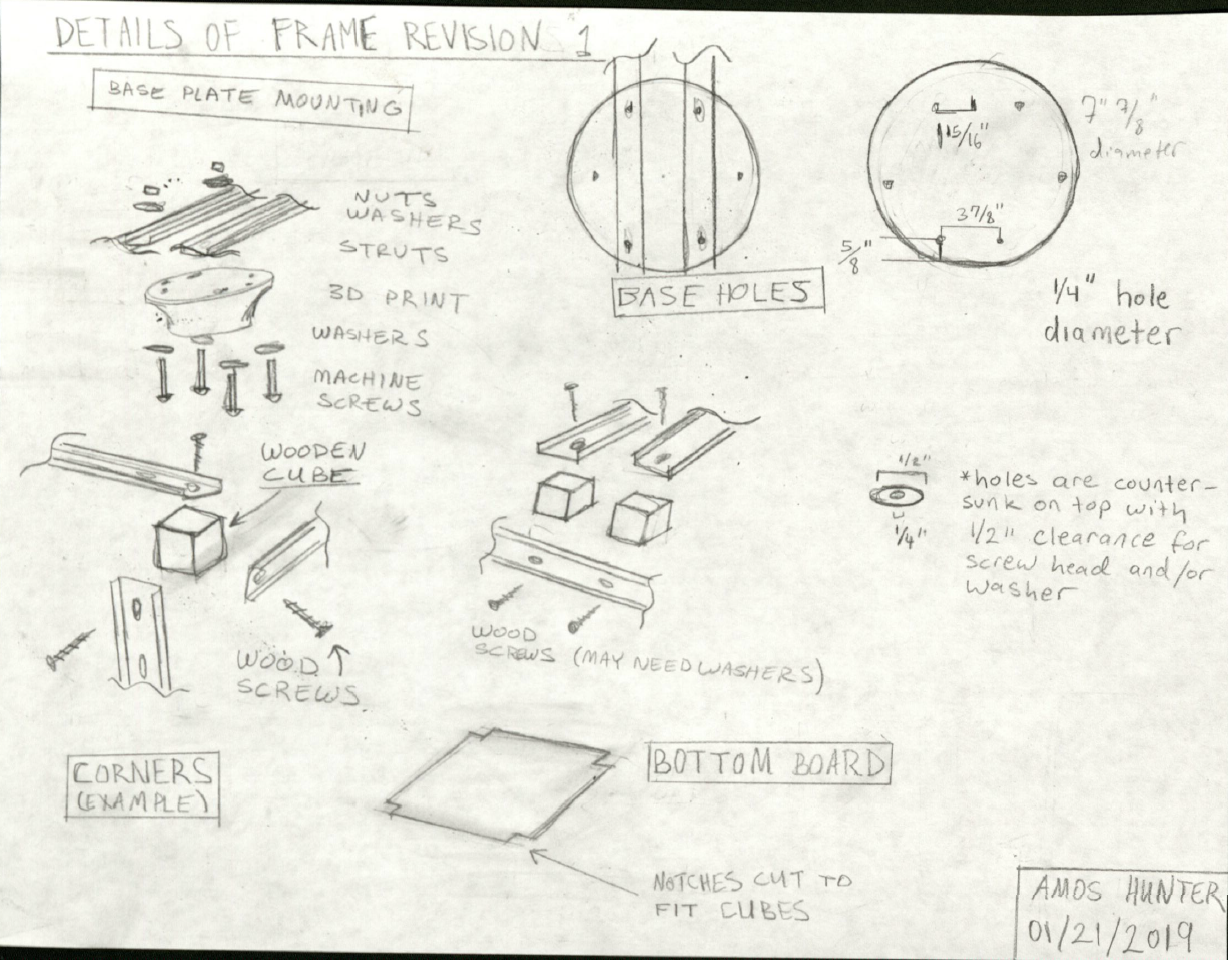 DETAILS OF FRAME REVISION 1
BASE PLATE MOUNTING
NUTS
WASHERS
STRUTS
3D PRINT
WASHERS
MACHINE
SCREWS
BASE HOLES
15/16"
7" 7/8"
diameter
3 7/8"
5/8"
1/4" hole
diameter
WOODEN
CUBE
WOOD
SCREWS
WOOD
SCREWS (MAY NEED WASHERS)
1/2"
1/4"
*holes are counter-
sunk on top with
1/2" clearance for
screw head and/or
washer
CORNERS
(EXAMPLE)
BOTTOM BOARD
NOTCHES CUT TO
FIT CUBES
AMOS HUNTER
01/21/2019